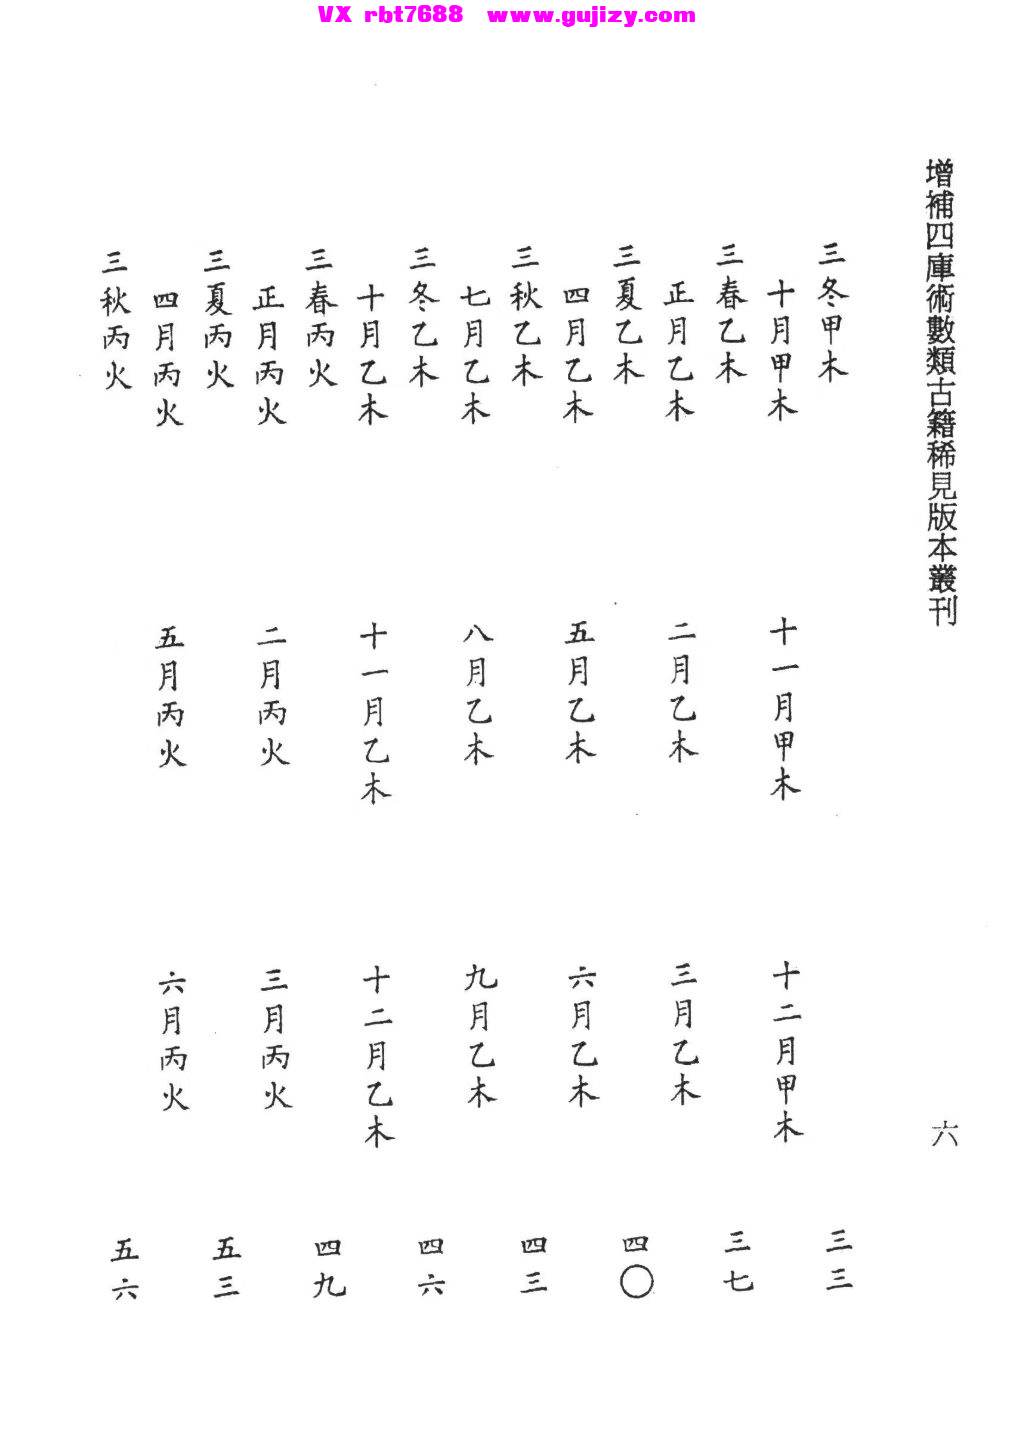 VX rbt7688 www.gujizy.com
增補四庫術數類古籍稀見版本叢刊
六
三冬甲木 三三
十月甲木 十一月甲木 十二月甲木
三春乙木 三七
正月乙木 二月乙木 三月乙木
三夏乙木 四〇
四月乙木 五月乙木 六月乙木
三秋乙木 四三
七月乙木 八月乙木 九月乙木
三冬乙木 四六
十月乙木 十一月乙木 十二月乙木
三春丙火 四九
正月丙火 二月丙火 三月丙火
三夏丙火 五三
四月丙火 五月丙火 六月丙火
三秋丙火 五六